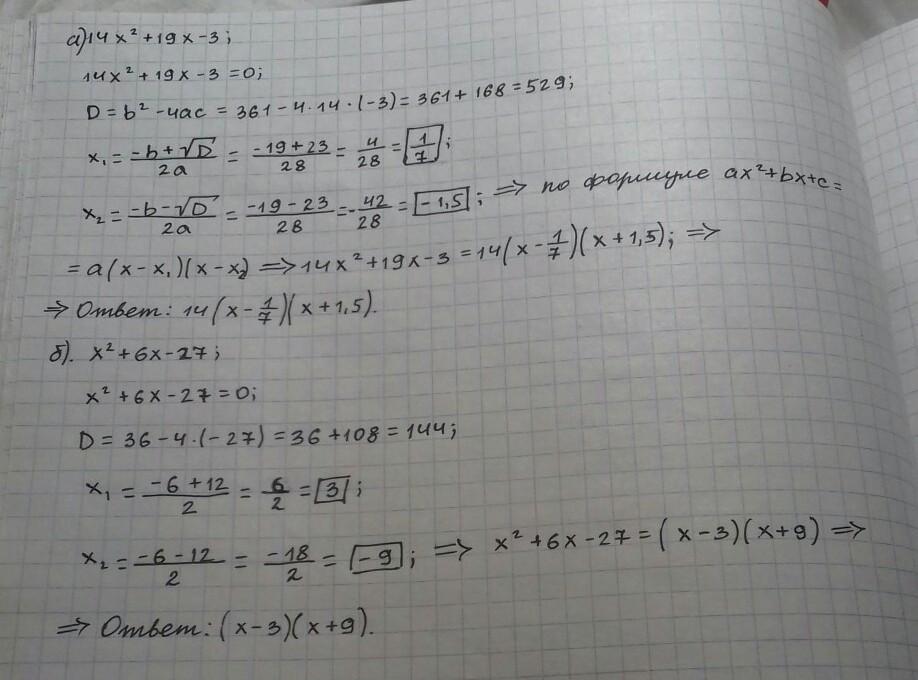 а) 14x² + 19x - 3;
14x² + 19x - 3 = 0;
D = b² - 4ac = 361 - 4 · 14 · (-3) = 361 + 168 = 529;
x₁ = (-b + √D)/(2a) = (-19 + 23)/28 = 4/28 = 1/7;
x₂ = (-b - √D)/(2a) = (-19 - 23)/28 = -42/28 = -1,5; ⇒ по формуле ax² + bx + c =
= a(x - x₁)(x - x₂) ⇒ 14x² + 19x - 3 = 14(x - 1/7)(x + 1,5); ⇒
⇒ Ответ: 14(x - 1/7)(x + 1,5).
б). x² + 6x - 27;
x² + 6x - 27 = 0;
D = 36 - 4 · (-27) = 36 + 108 = 144;
x₁ = (-6 + 12)/2 = 6/2 = 3;
x₂ = (-6 - 12)/2 = -18/2 = -9; ⇒ x² + 6x - 27 = (x - 3)(x + 9) ⇒
⇒ Ответ: (x - 3)(x + 9).